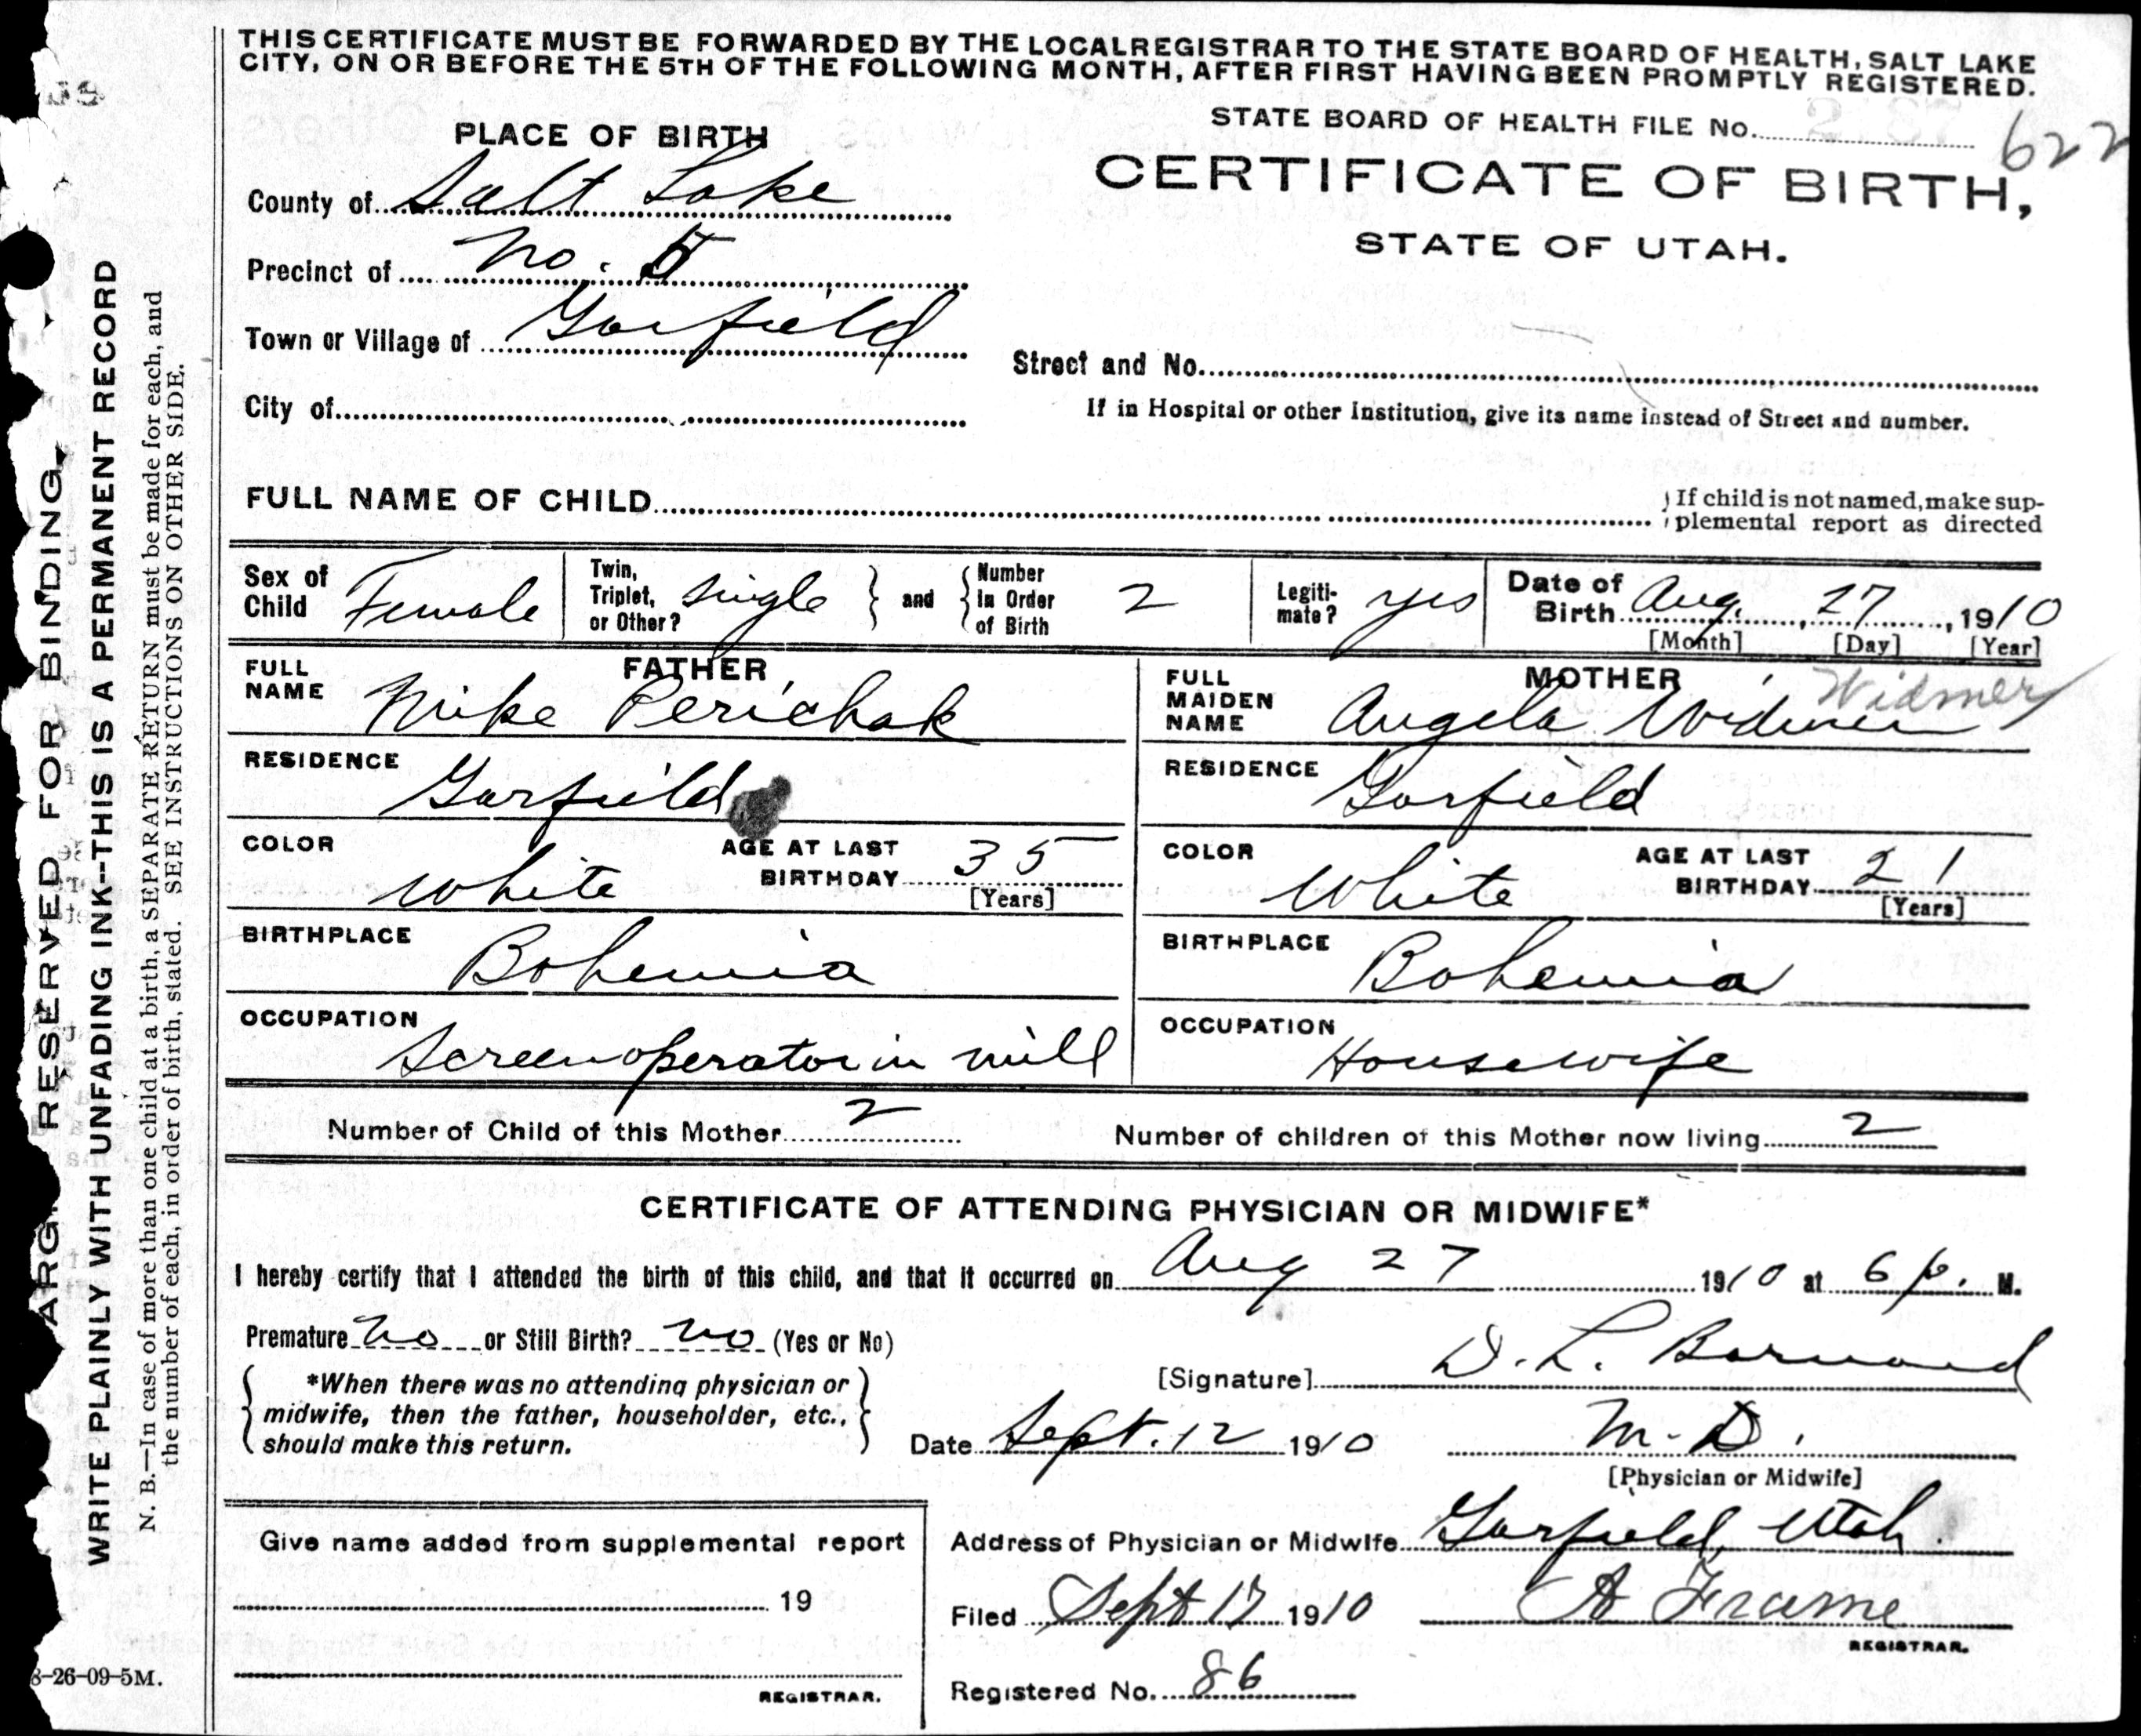 THIS CERTIFICATE MUST BE FORWARDED BY THE LOCAL REGISTRAR TO THE STATE BOARD OF HEALTH, SALT LAKE
CITY, ON OR BEFORE THE 5TH OF THE FOLLOWING MONTH, AFTER FIRST HAVING BEEN PROMPTLY REGISTERED.
STATE BOARD OF HEALTH FILE No. 622
PLACE OF BIRTH
CERTIFICATE OF BIRTH,
STATE OF UTAH.
County of Salt Lake
Precinct of No. 5
Town or Village of Garfield
Street and No.
City of
If in Hospital or other Institution, give its name instead of Street and number.
FULL NAME OF CHILD
If child is not named, make sup-
plemental report as directed
Sex of Child Female
Twin, Triplet, or Other? Single and Number In Order of Birth 2
Legiti-mate? yes
Date of Birth Aug. 27, 1910
[Month] [Day] [Year]
FATHER
FULL NAME Mike Perichak
RESIDENCE Garfield
COLOR White
AGE AT LAST BIRTHDAY 35
[Years]
BIRTHPLACE Bohemia
OCCUPATION Screen operator in mill
MOTHER
Widmer
FULL MAIDEN NAME Angela Widmer
RESIDENCE Garfield
COLOR White
AGE AT LAST BIRTHDAY 21
[Years]
BIRTHPLACE Bohemia
OCCUPATION Housewife
Number of Child of this Mother 2
Number of children of this Mother now living 2
CERTIFICATE OF ATTENDING PHYSICIAN OR MIDWIFE*
I hereby certify that I attended the birth of this child, and that it occurred on Aug 27 1910 at 6 p. M.
Premature no or Still Birth? no (Yes or No)
*When there was no attending physician or
midwife, then the father, householder, etc.,
should make this return.
[Signature] D. L. Barnard
Date Sept. 12 1910
M. D.
[Physician or Midwife]
Give name added from supplemental report
19
REGISTRAR.
Address of Physician or Midwife Garfield, Utah.
Filed Sept 17 1910
A Frame
REGISTRAR.
Registered No. 86
8-26-09-5M.
RESERVED FOR BINDING.
WRITE PLAINLY WITH UNFADING INK--THIS IS A PERMANENT RECORD
N. B.—In case of more than one child at a birth, a SEPARATE RETURN must be made for each, and
the number of each, in order of birth, stated. SEE INSTRUCTIONS ON OTHER SIDE.